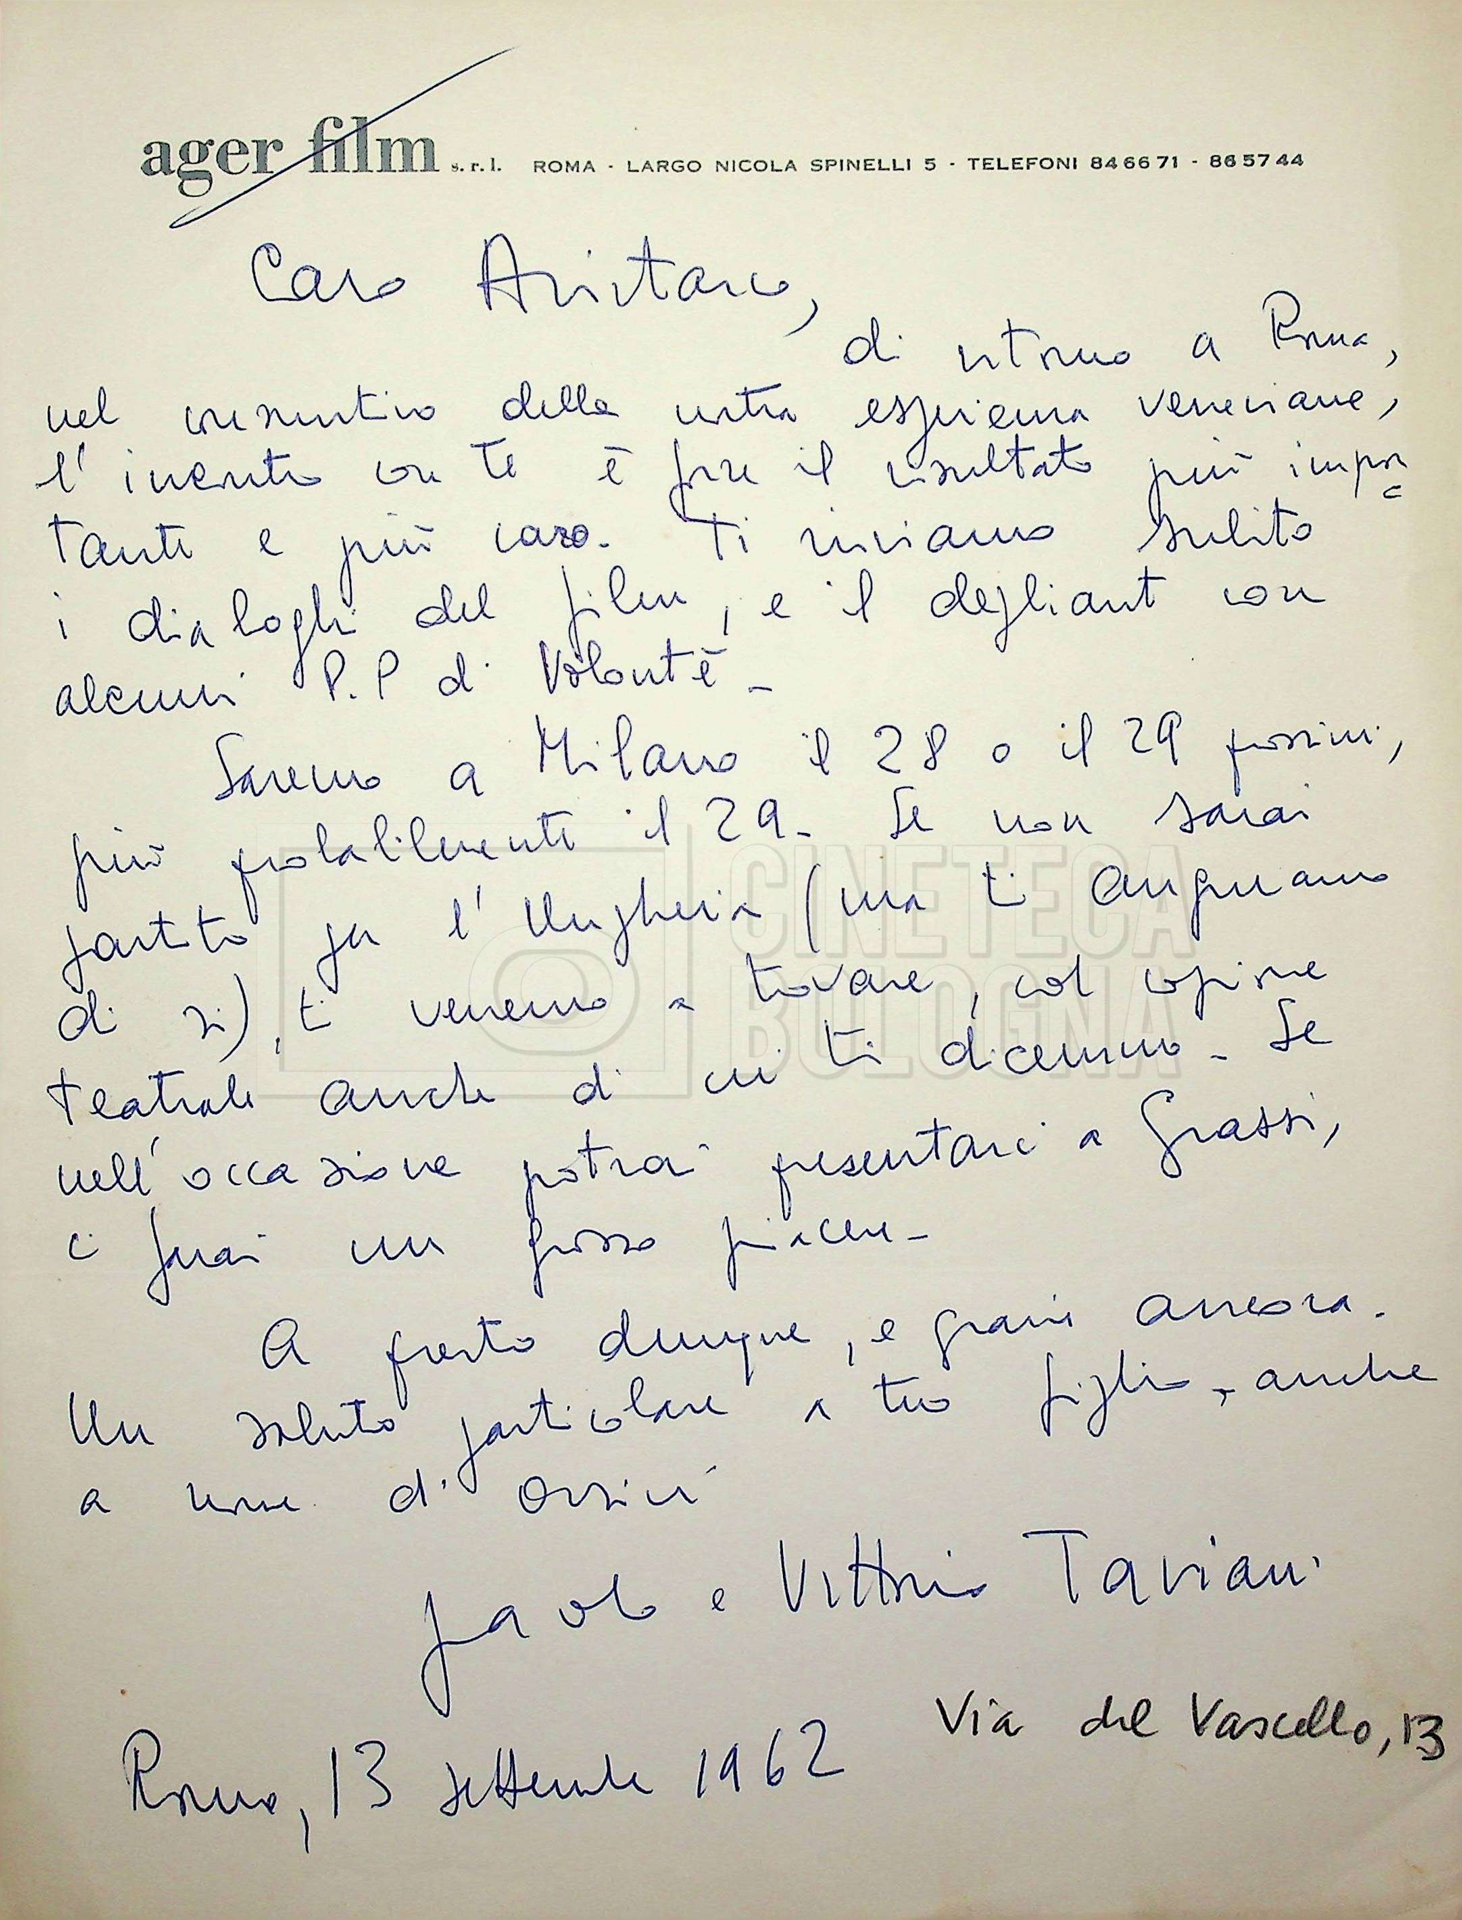 ager film s.r.l. ROMA - LARGO NICOLA SPINELLI 5 - TELEFONI 846671 - 865744
Caro Aristarco,
di ritorno a Roma,
nel consuntivo della nostra esperienza veneziana,
l'incontro con te è forse il risultato più impor
tante e più caro. Ti inviamo subito
i dialoghi del film, e il depliant con
alcuni P.P di Volontè -
Saremo a Milano il 28 o il 29 prossimi,
più probabilmente il 29 - Se non sarai
partito per l'Ungheria (ma ti auguriamo
di sì), ti verremo a trovare, col copione
teatrale anche di cui ti dicemmo - Se
nell'occasione potrai presentarci a Grassi,
ci farai un grosso piacere -
A presto dunque, e grazie ancora.
Un saluto particolare a tuo figlio, anche
a nome di Orsini
Paolo e Vittorio Taviani
Via del Vascello, 13
Roma, 13 settembre 1962
CINETECA
BOLOGNA